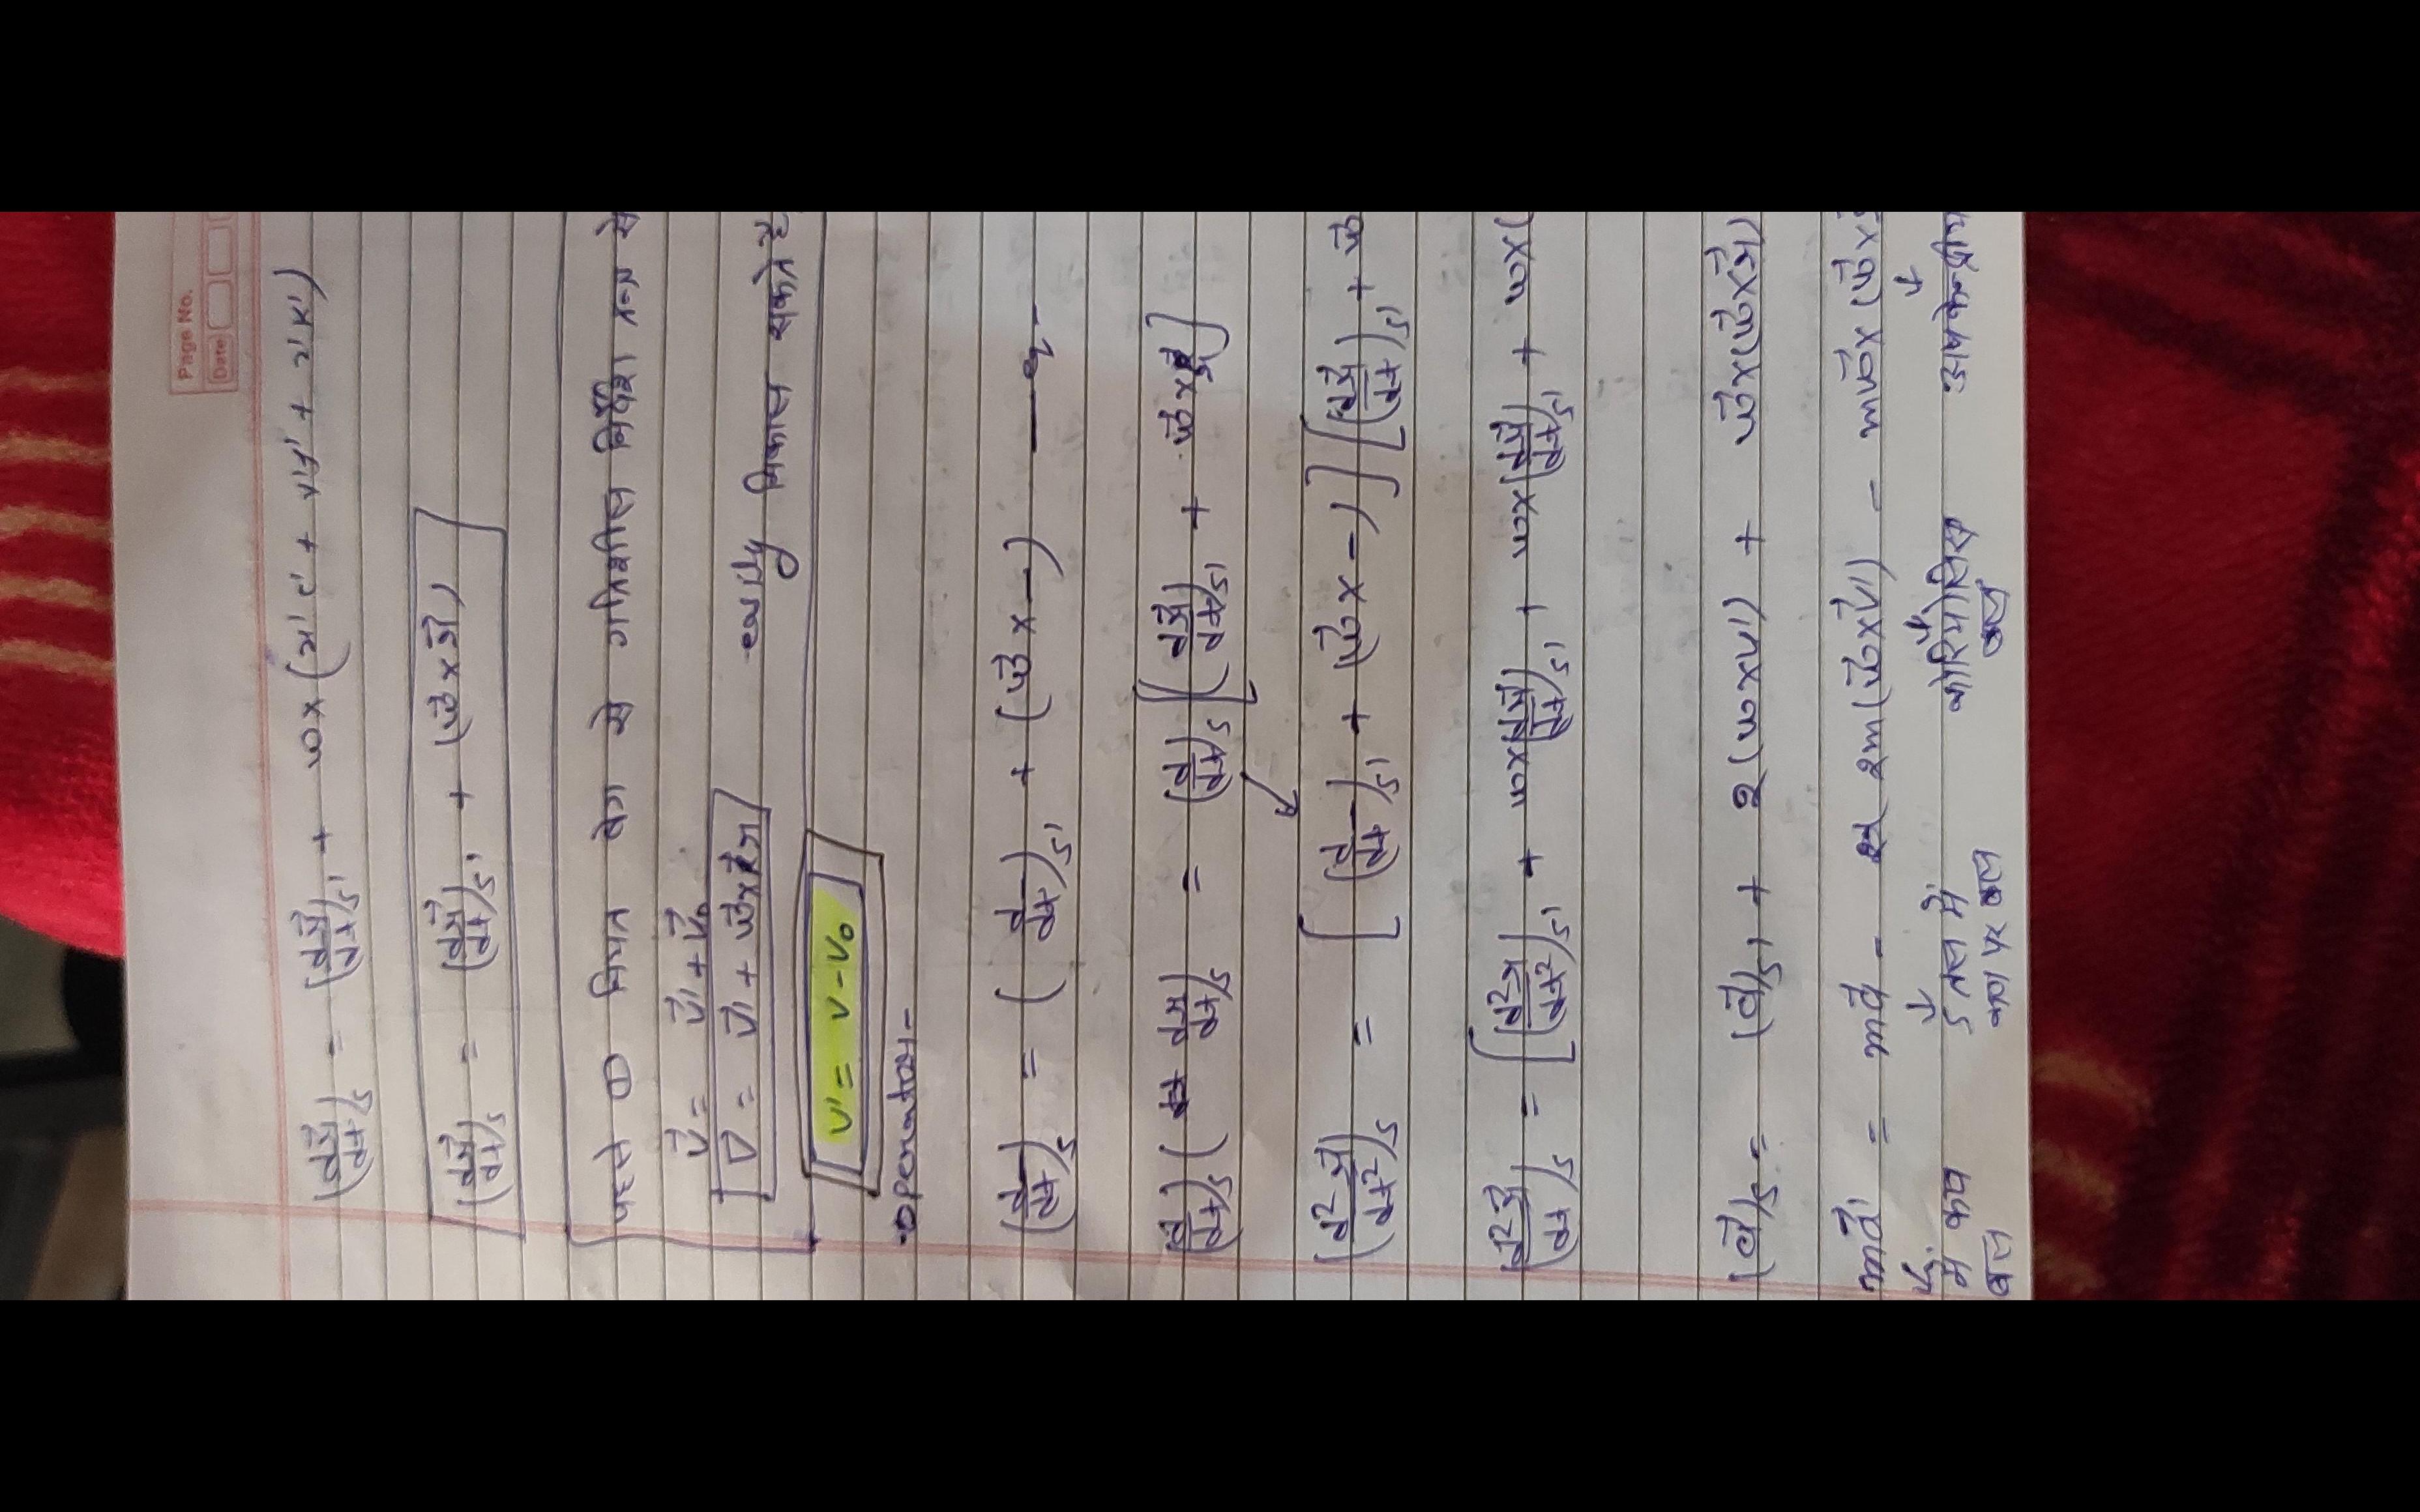 Page No.
Date
(dr⃗/dt)s = (dr⃗/dt)s' + ω×(x'i' + y'j' + z'k')
(dr⃗/dt)s = (dr⃗/dt)s' + (ω⃗×r⃗)
① नियत वेग से गतिशील निर्देश तन्त्र से
V⃗ = V⃗' + V⃗₀
V⃗ = V⃗' + ω⃗×r⃗ easily निकाल सकते है
V' = V - V₀
Operator -
(d/dt)s = (d/dt)s' + (ω⃗×-) — २-
(d/dt)s (dr/dt)s = (d/dt)s [(dr⃗/dt)s' + ω⃗×r⃗]
(d²r⃗/dt²)s = [(d/dt)s' + (ω⃗×-)] [(dr⃗/dt)s' + ω⃗
(d²r⃗/dt)s = [(d²r/dt²)s' + ω×(dr⃗/dt)s' + ω×(dr⃗/dt)s' + ω×(
(a⃗)s = (a⃗)s' + 2(ω×v') + ω⃗×(ω⃗×r⃗)
ma⃗' = ma⃗ - 2m(ω⃗×v⃗') - mω⃗×(ω⃗×
में कण S तल में कोरियोलिस अपकेन्द्रीय
बल कण पर बल बल